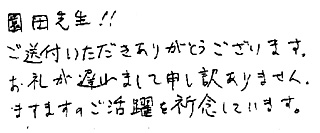 園田先生!!
ご送付いただきありがとうございます。
お礼が遅れまして申し訳ありません。
ますますのご活躍を祈念しています。